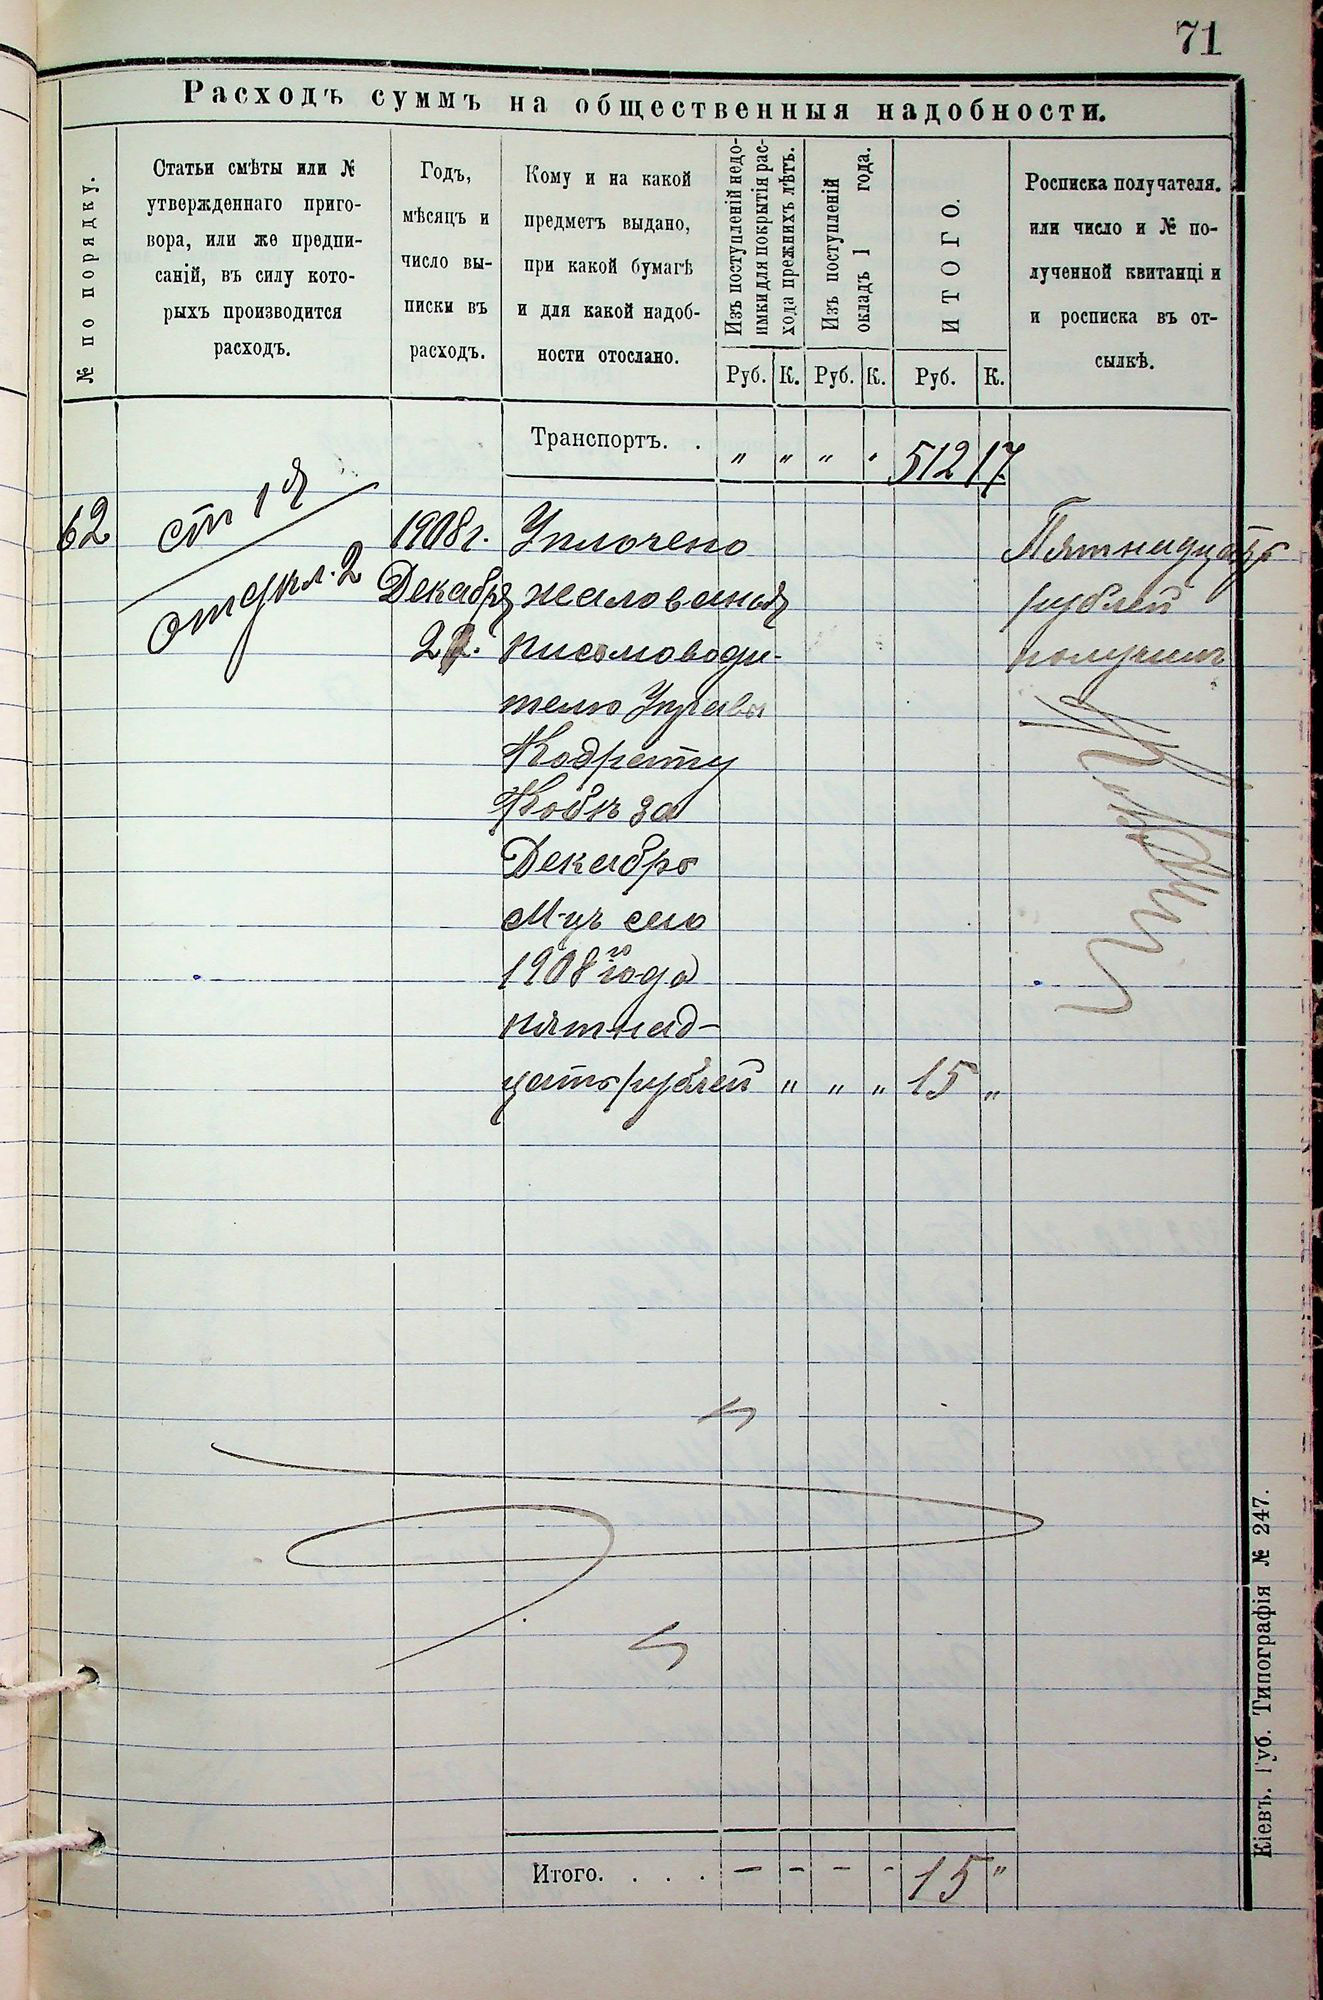 71
Расходъ суммъ на общественныя надобности.
№ по порядку.
Статьи смѣты или №
утвержденнаго приго-
вора, или же предпи-
саній, въ силу кото-
рыхъ производится
расходъ.
Годъ,
мѣсяцъ и
число вы-
писки въ
расходъ.
Кому и на какой
предметъ выдано,
при какой бумагѣ
и для какой надоб-
ности отослано.
Изъ поступленій недо-
имки для покрытія рас-
хода прежнихъ лѣтъ.
Изъ поступленій
окладъ 1 года.
ИТОГО.
Росписка получателя.
или число и № по-
лученной квитанці и
и росписка въ от-
сылкѣ.
Руб. К. Руб. К. Руб. К.
Транспортъ. . " " " " 512 17
62
ст 1я
отдѣл. 2
1908 г.
Декабря
22.
Уплочено
жалованья
писмоводи-
телю Управы
Кодрату
за
Декабрь
М-цъ сего
1908 го года
пятнад-
цать рублей " " " 15 "
Пятнадцать
рублей
получилъ
Итого. . . . - - - - 15 "
Кіевъ. Губ. Типографія № 247.